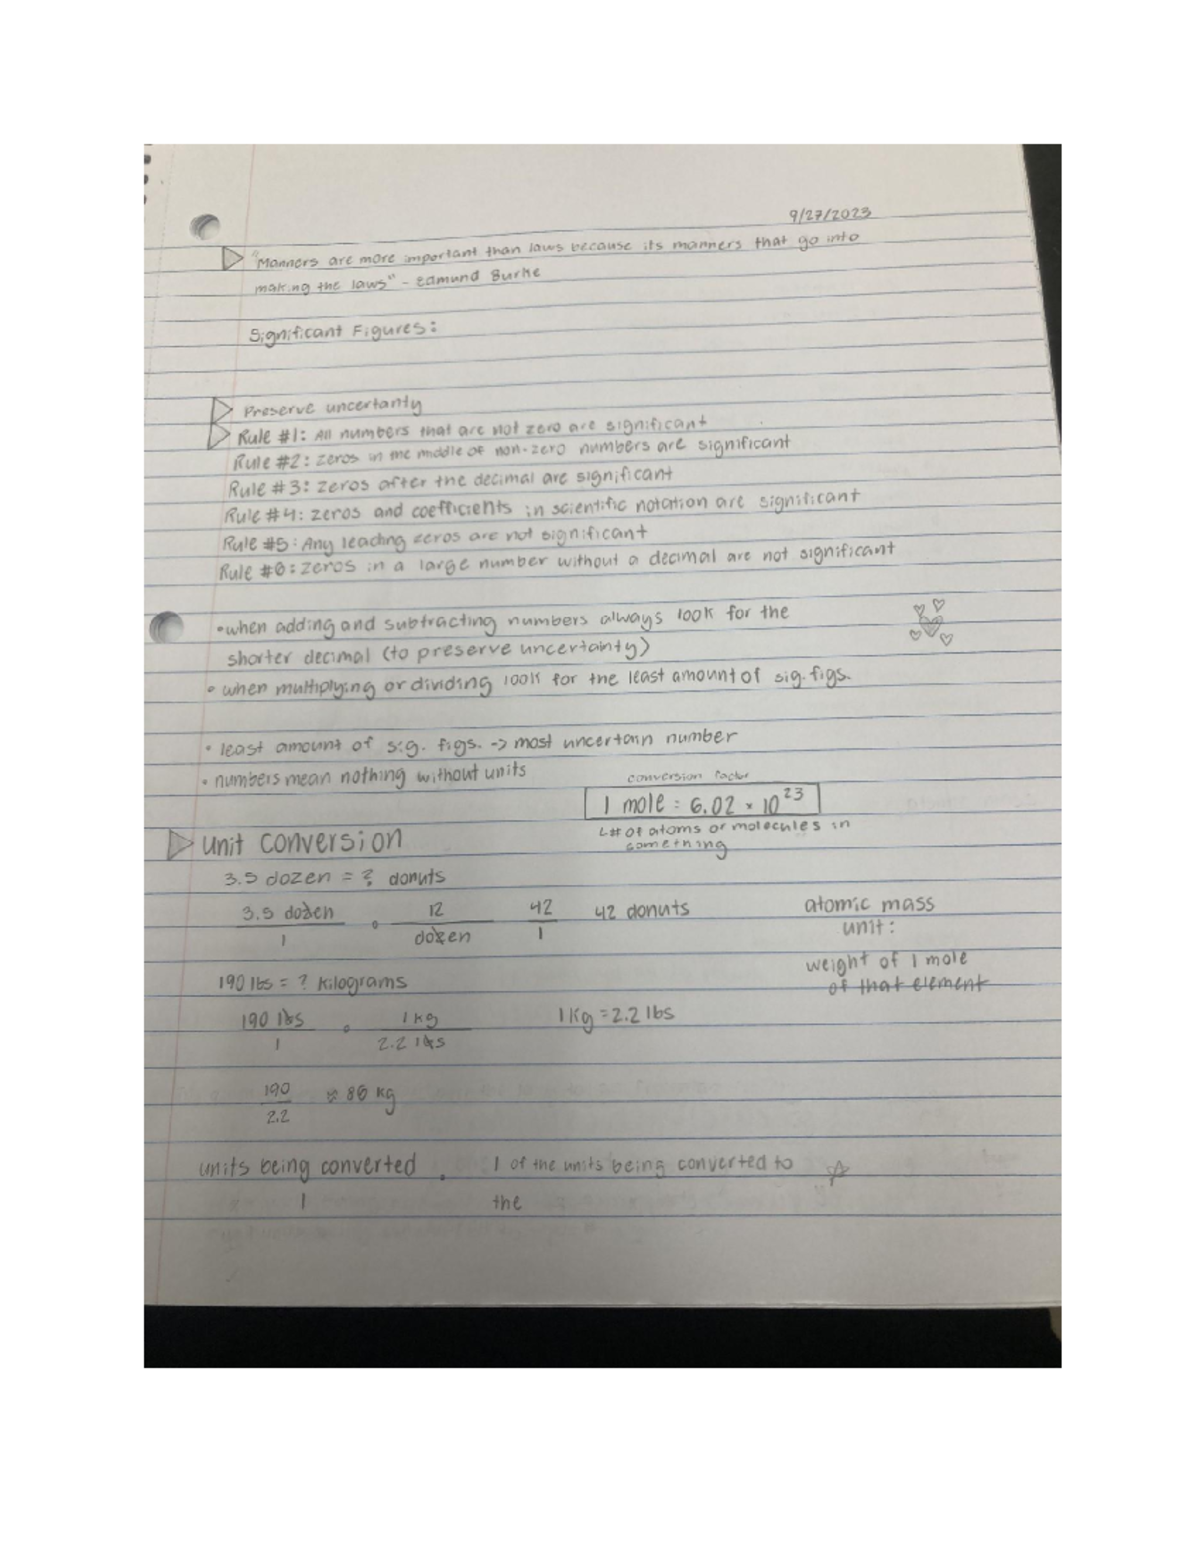 9/27/2023
"Manners are more important than laws because its manners that go into
making the laws" - Edmund Burke
Significant Figures:
Preserve uncertanty
Rule #1: All numbers that are not zero are significant
Rule #2: zeros in the middle of non-zero numbers are significant
Rule #3: zeros after the decimal are significant
Rule #4: zeros and coefficients in scientific notation are significant
Rule #5: Any leading zeros are not significant
Rule #6: zeros in a large number without a decimal are not significant
•when adding and subtracting numbers always look for the
shorter decimal (to preserve uncertainty)
• when multiplying or dividing look for the least amount of sig. figs.
• least amount of sig. figs. -> most uncertain number
• numbers mean nothing without units
conversion factor
1 mole = 6.02 × 10^23
↳# of atoms or molecules in
something
unit conversion
3.5 dozen = ? donuts
3.5 dozen / 1 • 12 / dozen 42 / 1 42 donuts
atomic mass
unit:
weight of 1 mole
of that element
190 lbs = ? kilograms
190 lbs / 1 • 1 kg / 2.2 lbs 1 kg = 2.2 lbs
190 / 2.2 ≈ 86 kg
units being converted / 1 • 1 of the units being converted to
the